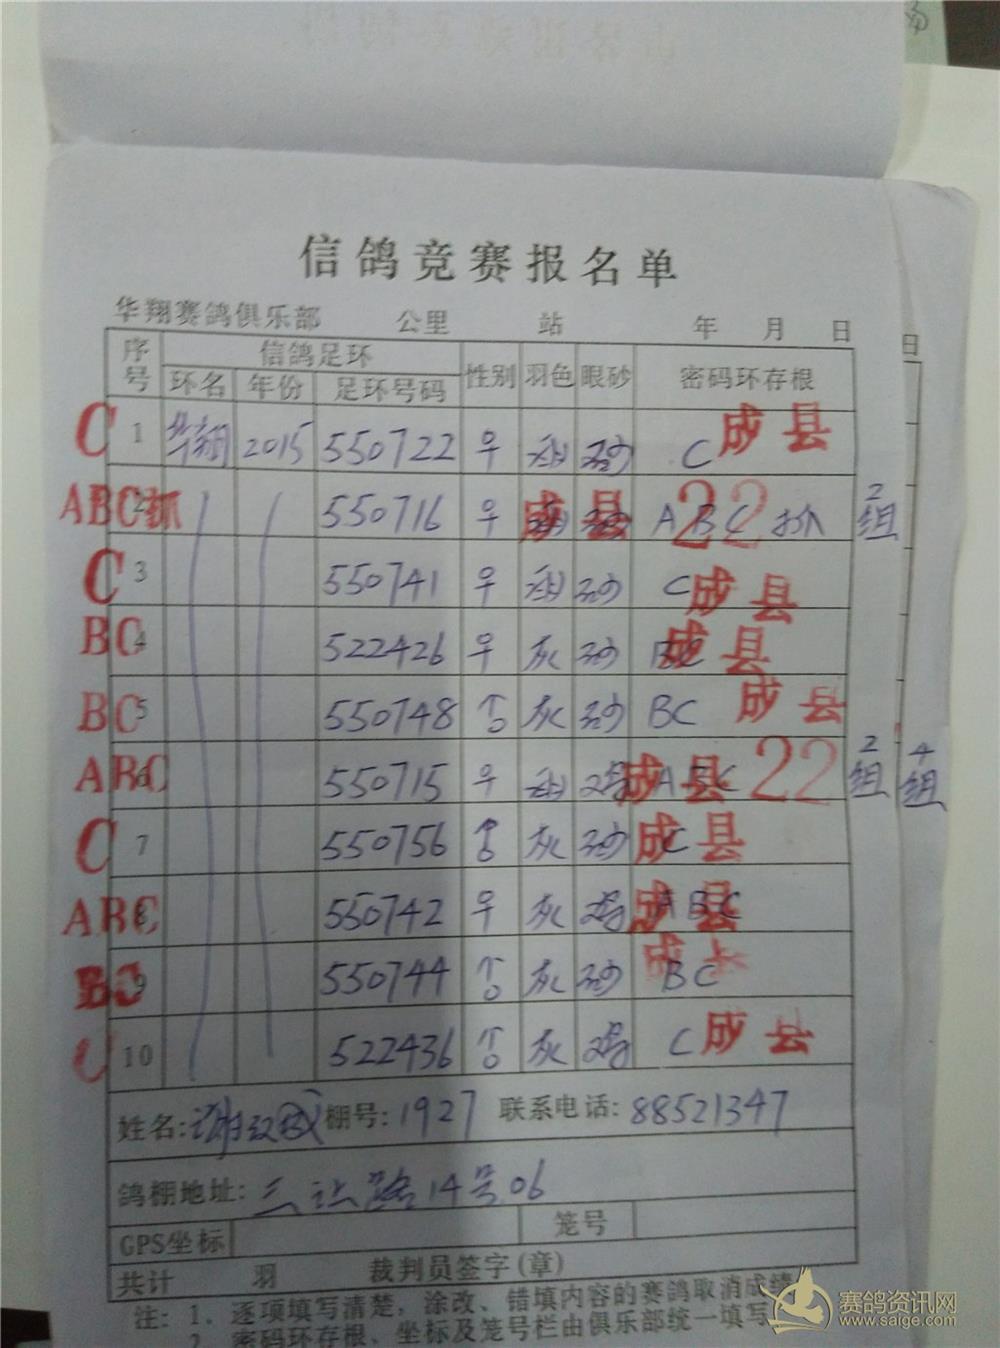 信鸽竞赛报名单
华翔赛鸽俱乐部 公里 站 年 月 日
日
序号 信鸽足环 性别 羽色 眼砂 密码环存根
环名 年份 足环号码
C 1 华翔 2015 550722 ♀ 砂 C 成县
ABC抓 2 550716 ♀ 成县 砂 ABC抓 22 2组
C 3 550741 ♀ 砂 C 成县
BC 4 522426 ♀ 灰 砂 BC 成县
BC 5 550748 ♂ 灰 砂 BC 成县
ABC 6 550715 ♀ 成县 ABC 22 2组 4组
C 7 550756 ♂ 灰 砂 C 成县
ABC 8 550742 ♀ 灰 ABC 成县
BC 9 550744 ♂ 灰 砂 BC 成县
C 10 522436 ♂ 灰 C 成县
姓名: 谢 棚号: 1927 联系电话: 88521347
鸽棚地址: 路14号06
GPS坐标 笼号
共计 羽 裁判员签字(章)
注: 1、逐项填写清楚，涂改、错填内容的赛鸽取消成绩
2、密码环存根、坐标及笼号栏由俱乐部统一填写
赛鸽资讯网
www.saige.com